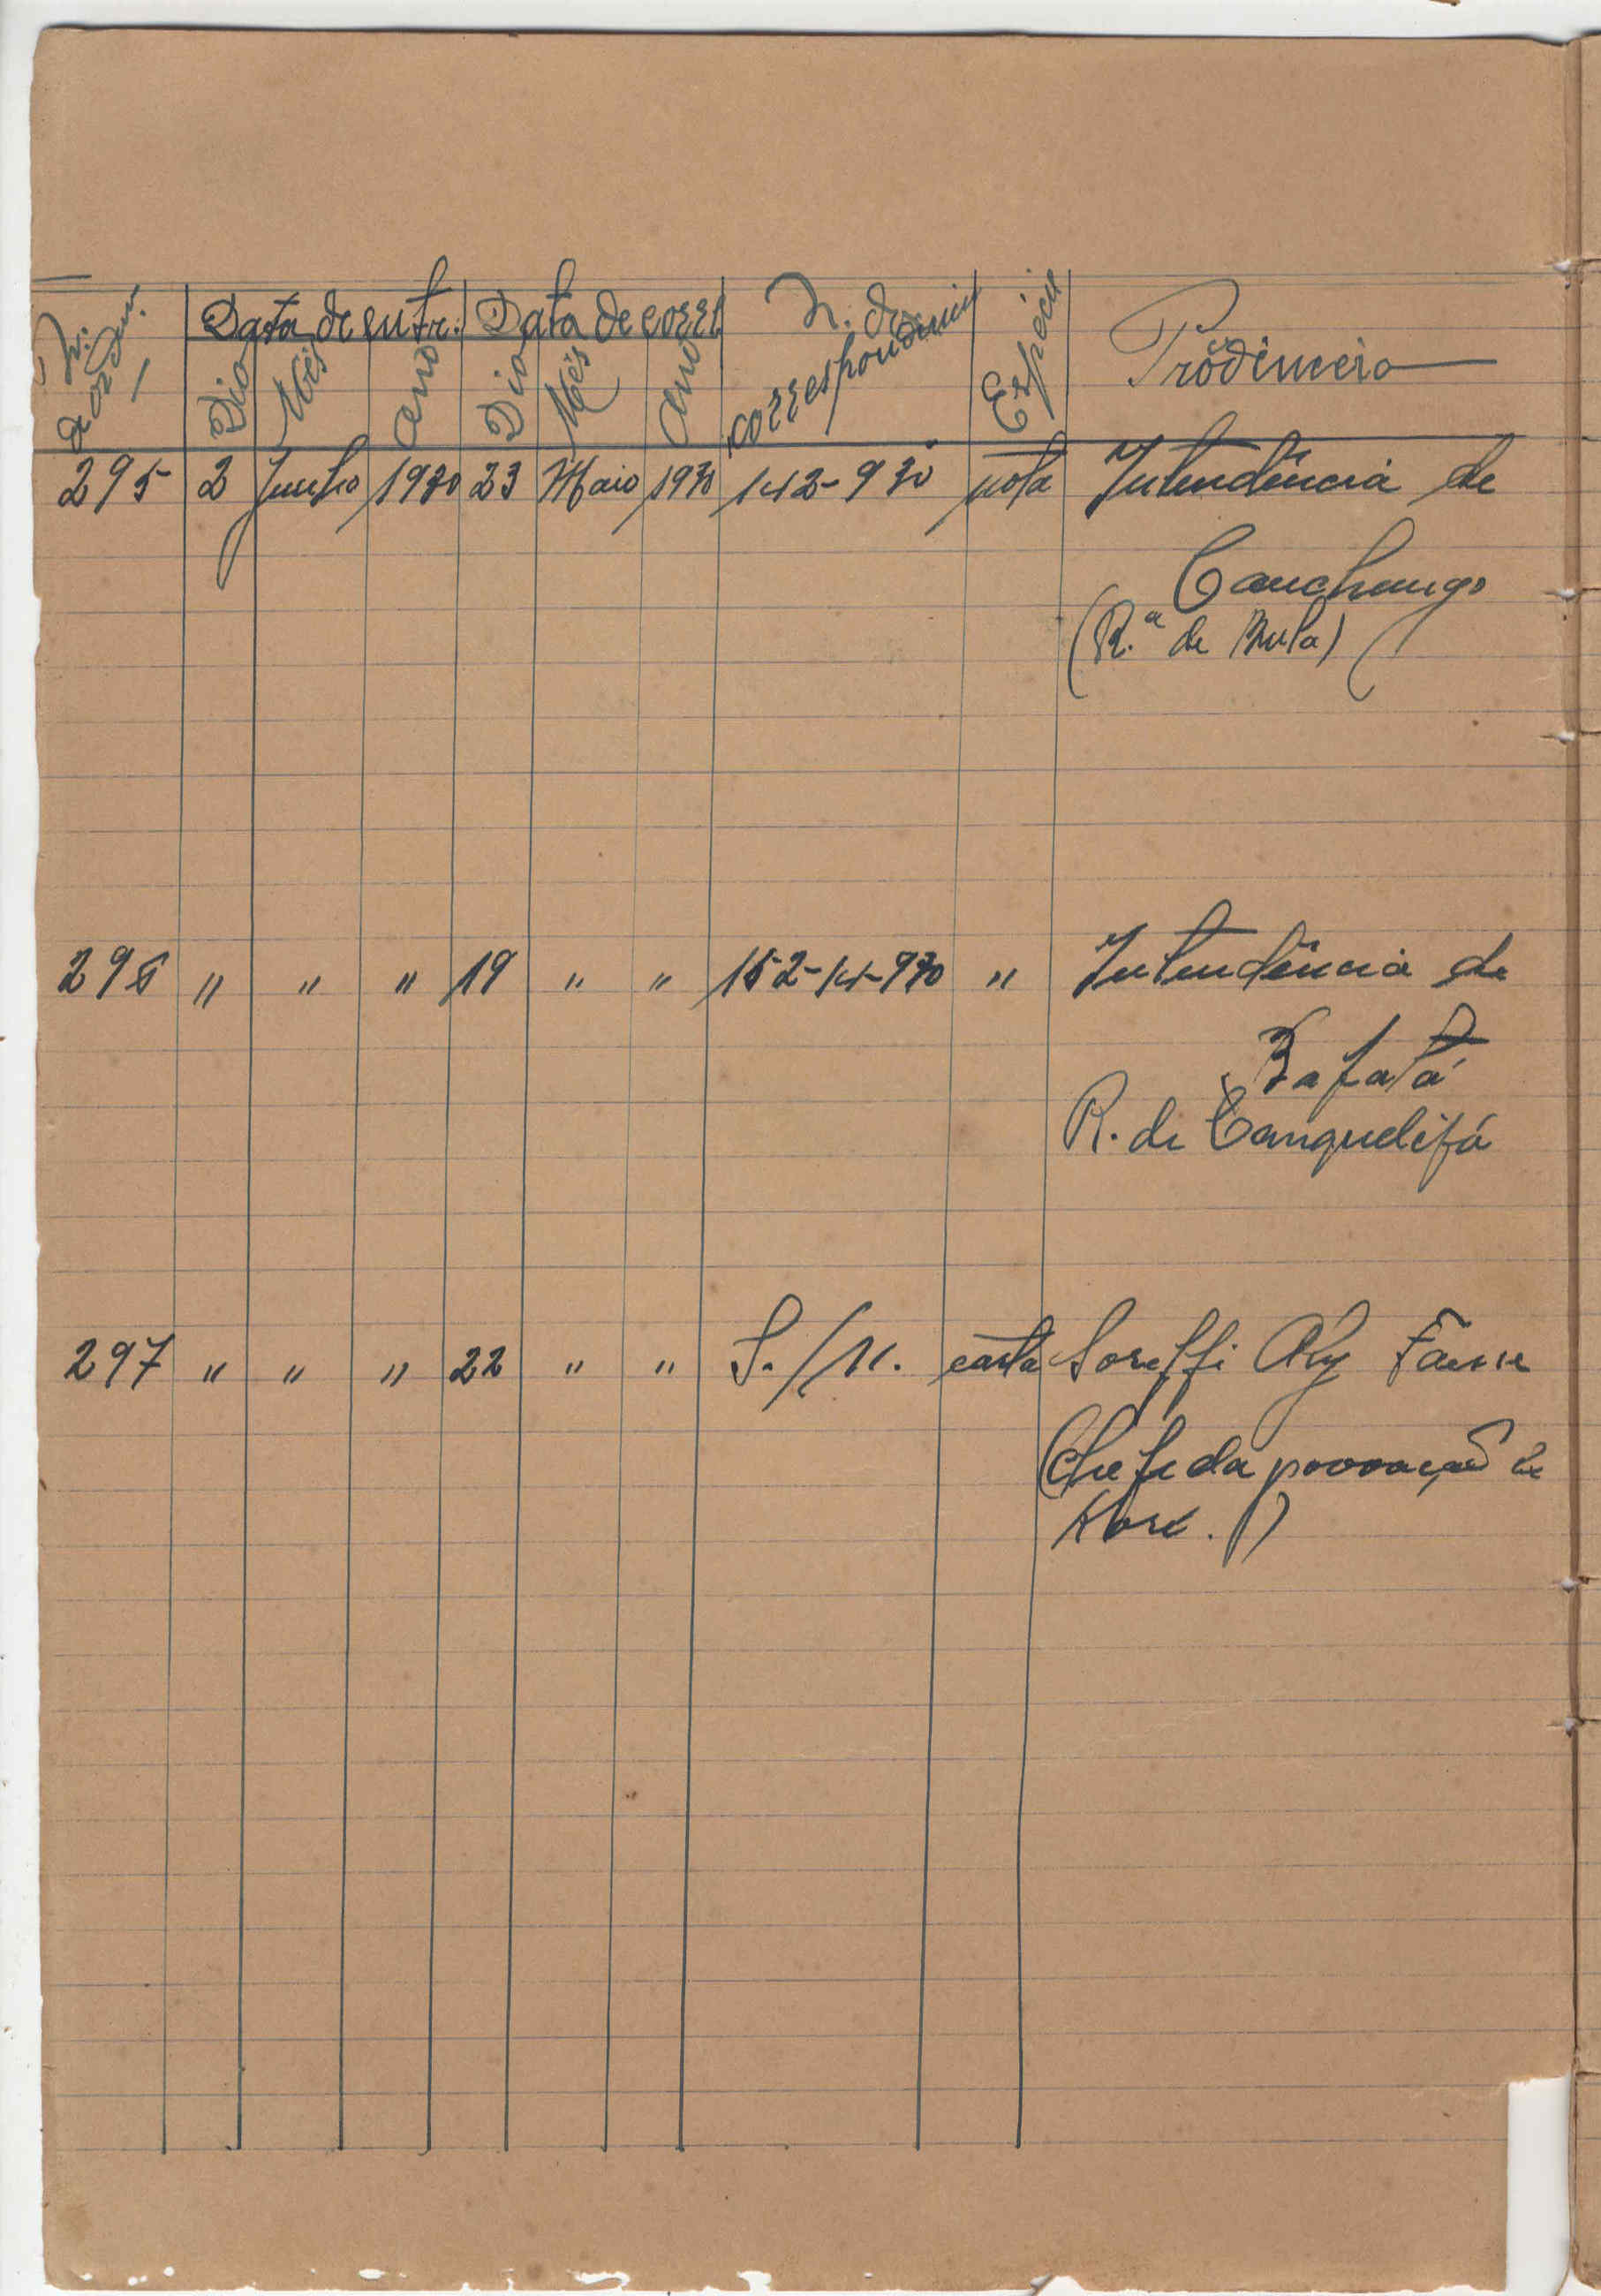 N. de ordem Data de entr. Data de corr. N. de correspondencia Espécie Prodinceia
Dia Mês Ano Dia Mês Ano
295 2 Junho 1930 23 Maio 1930 142-930 nota Intendência de
Canchungo
(R.ª de Bula)
296 " " " 19 " " 152-14-930 " Intendência de
Bafatá
R. de Canquelifá
297 " " " 22 " " S./N. carta
(Chefe da povoação de